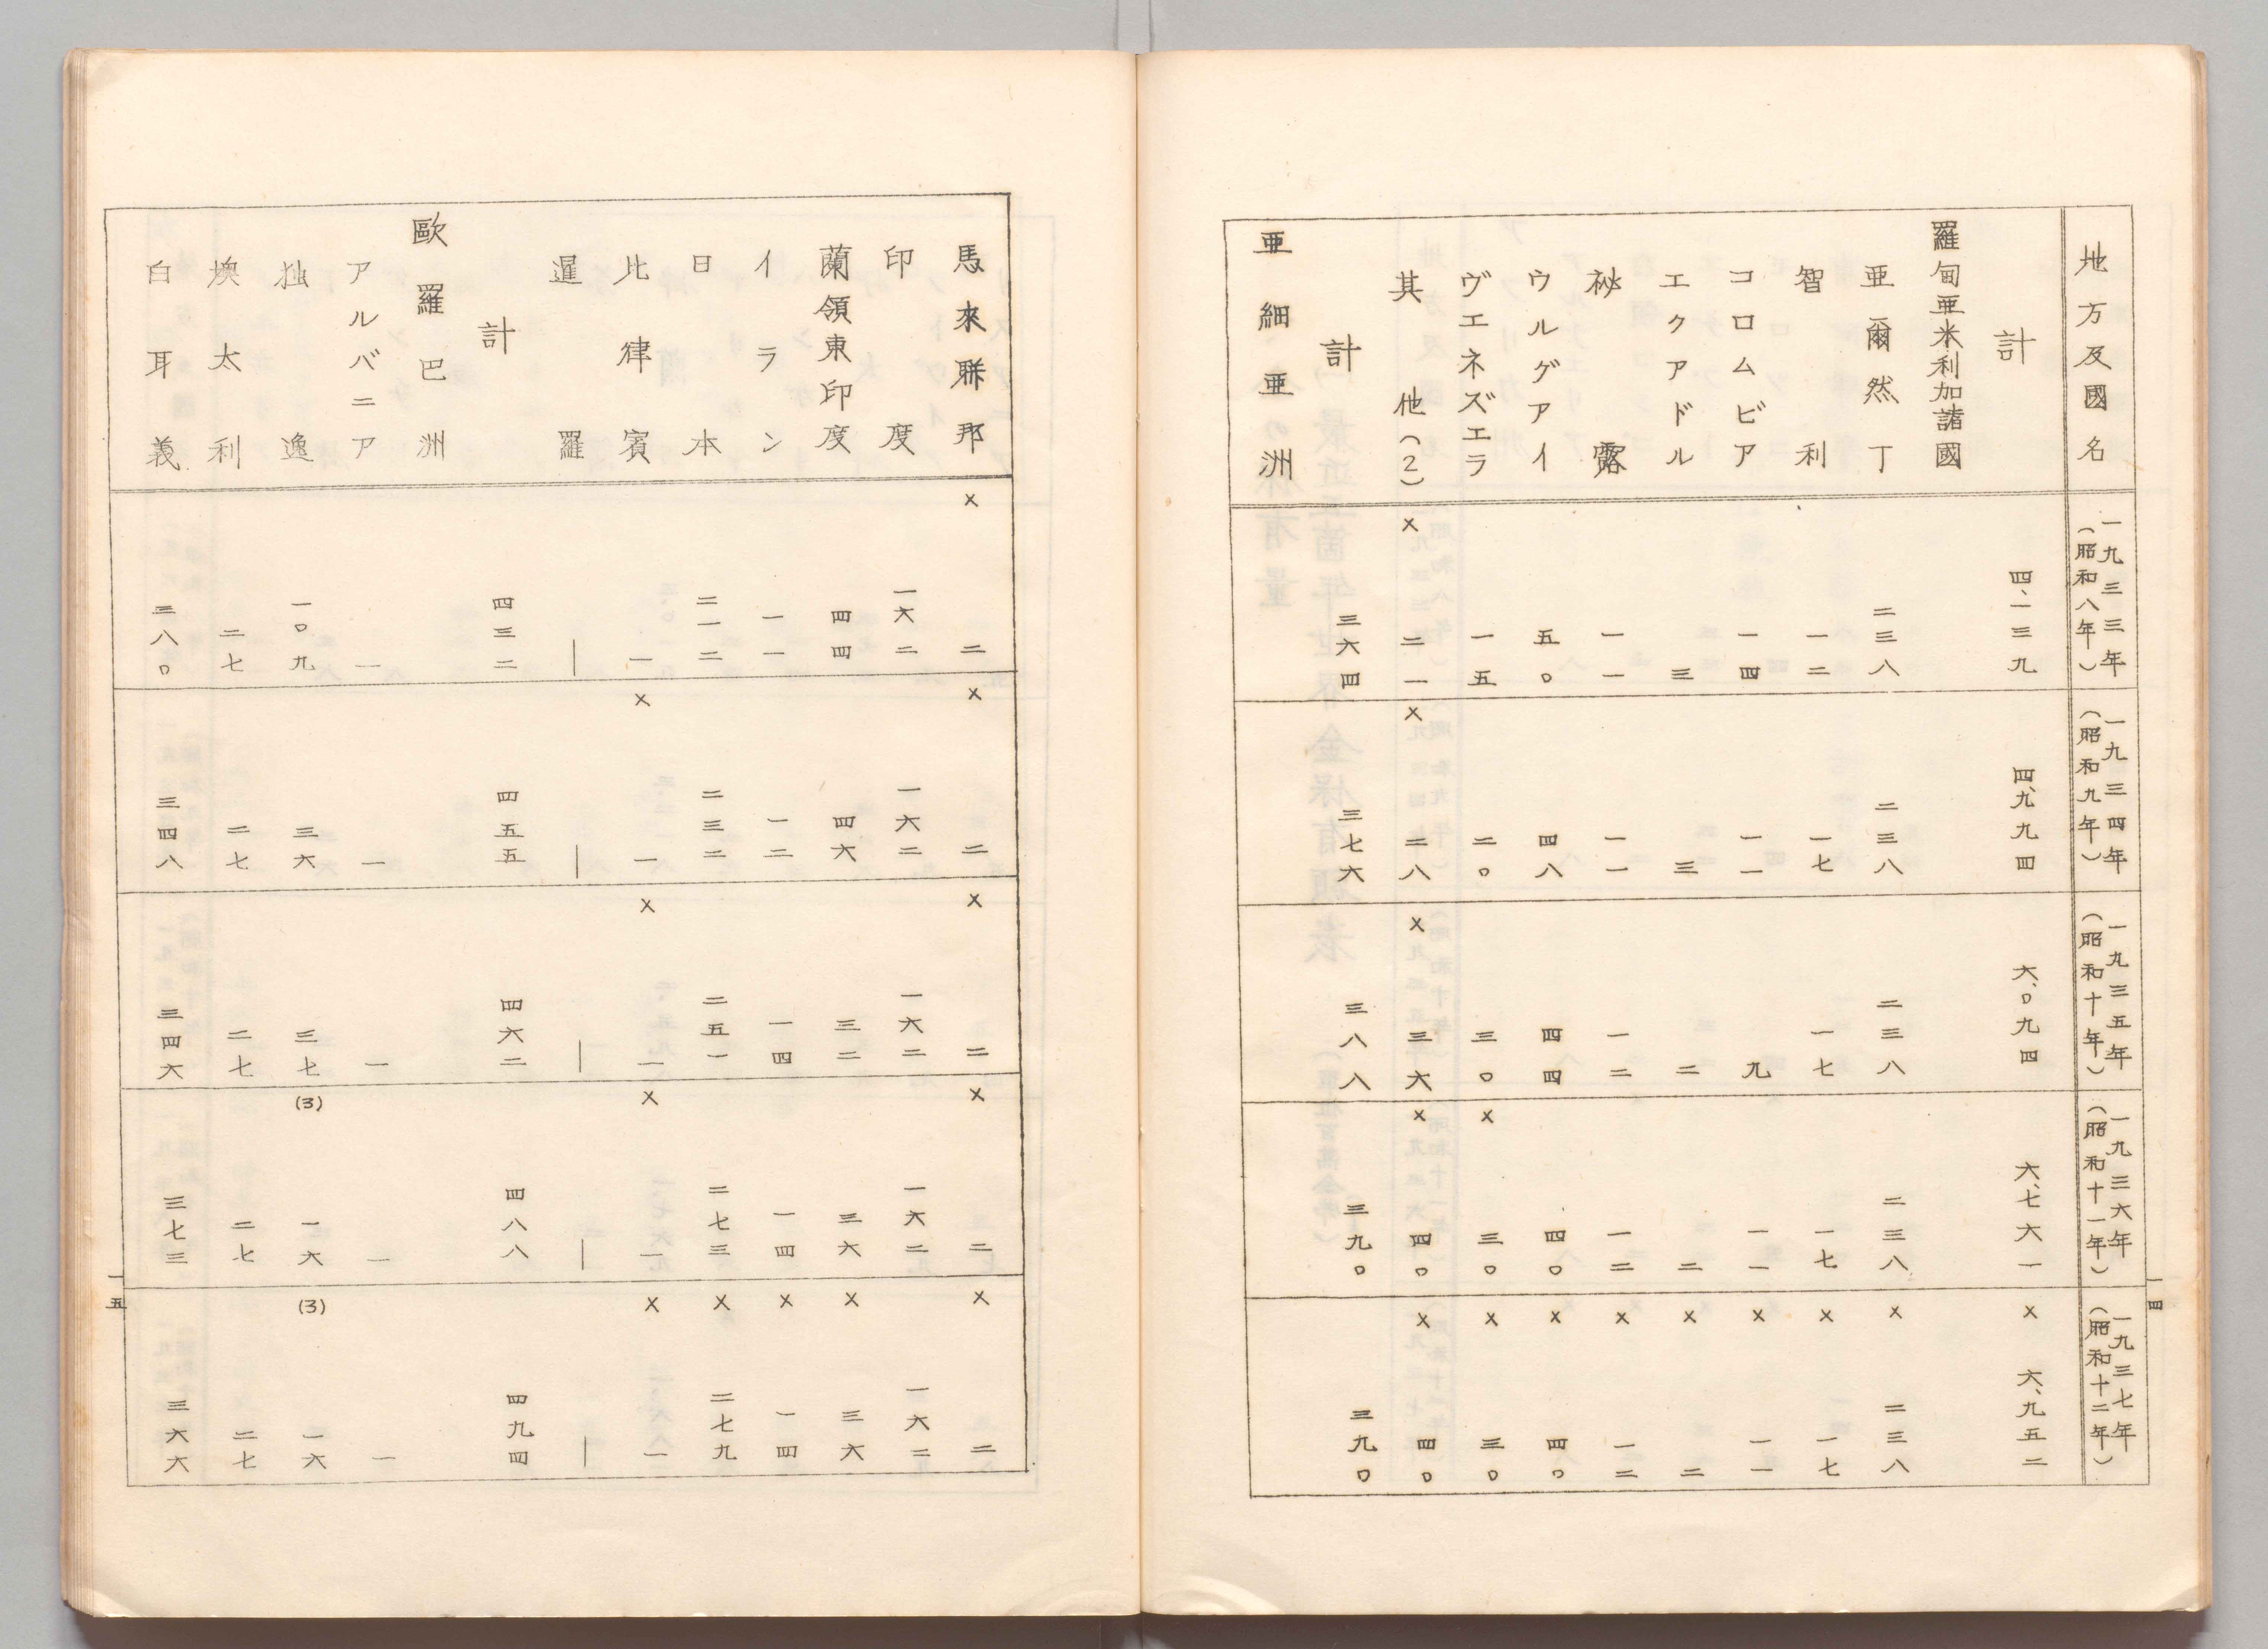 地方及國名 一九三三年(昭和八年) 一九三四年(昭和九年) 一九三五年(昭和十年) 一九三六年(昭和十一年) 一九三七年(昭和十二年)
計 四、一三九 四、九九四 六、〇九四 六、七六一 × 六、九五二
羅甸亜米利加諸國
亜爾然丁 二三八 二三八 二三八 二三八 × 二三八
智利 一二 一七 一七 一七 × 一七
コロムビア 一四 一一 九 一一 × 一一
エクアドル 三 三 二 二 × 二
祕露 一一 一一 一二 一二 × 一二
ウルグアイ 五〇 四八 四四 四〇 × 四〇
ヴエネズエラ 一五 二〇 三〇 × 三〇 × 三〇
其他(2) × 二一 × 二八 × 三六 × 四〇 × 四〇
計 三六四 三七六 三八八 三九〇 三九〇
亜細亜洲
一四
馬來聯邦 × 二 × 二 × 二 × 二 × 二
印度 一六二 一六二 一六二 一六二 一六二
蘭領東印度 四四 四六 三二 三六 × 三六
イラン 一一 一二 一四 一四 × 一四
日本 二一二 二三二 二五一 二七三 × 二七九
比律賓 一 × 一 × 一 × 一 × 一
暹羅 ― ― ― ― ―
計 四三二 四五五 四六二 四八八 四九四
歐羅巴洲
アルバニア 一 一 一 一 一
独逸 一〇九 三六 三七 (3) 一六 (3) 一六
墺太利 二七 二七 二七 二七 二七
白耳義 三八〇 三四八 三四六 三七三 三六六
一五